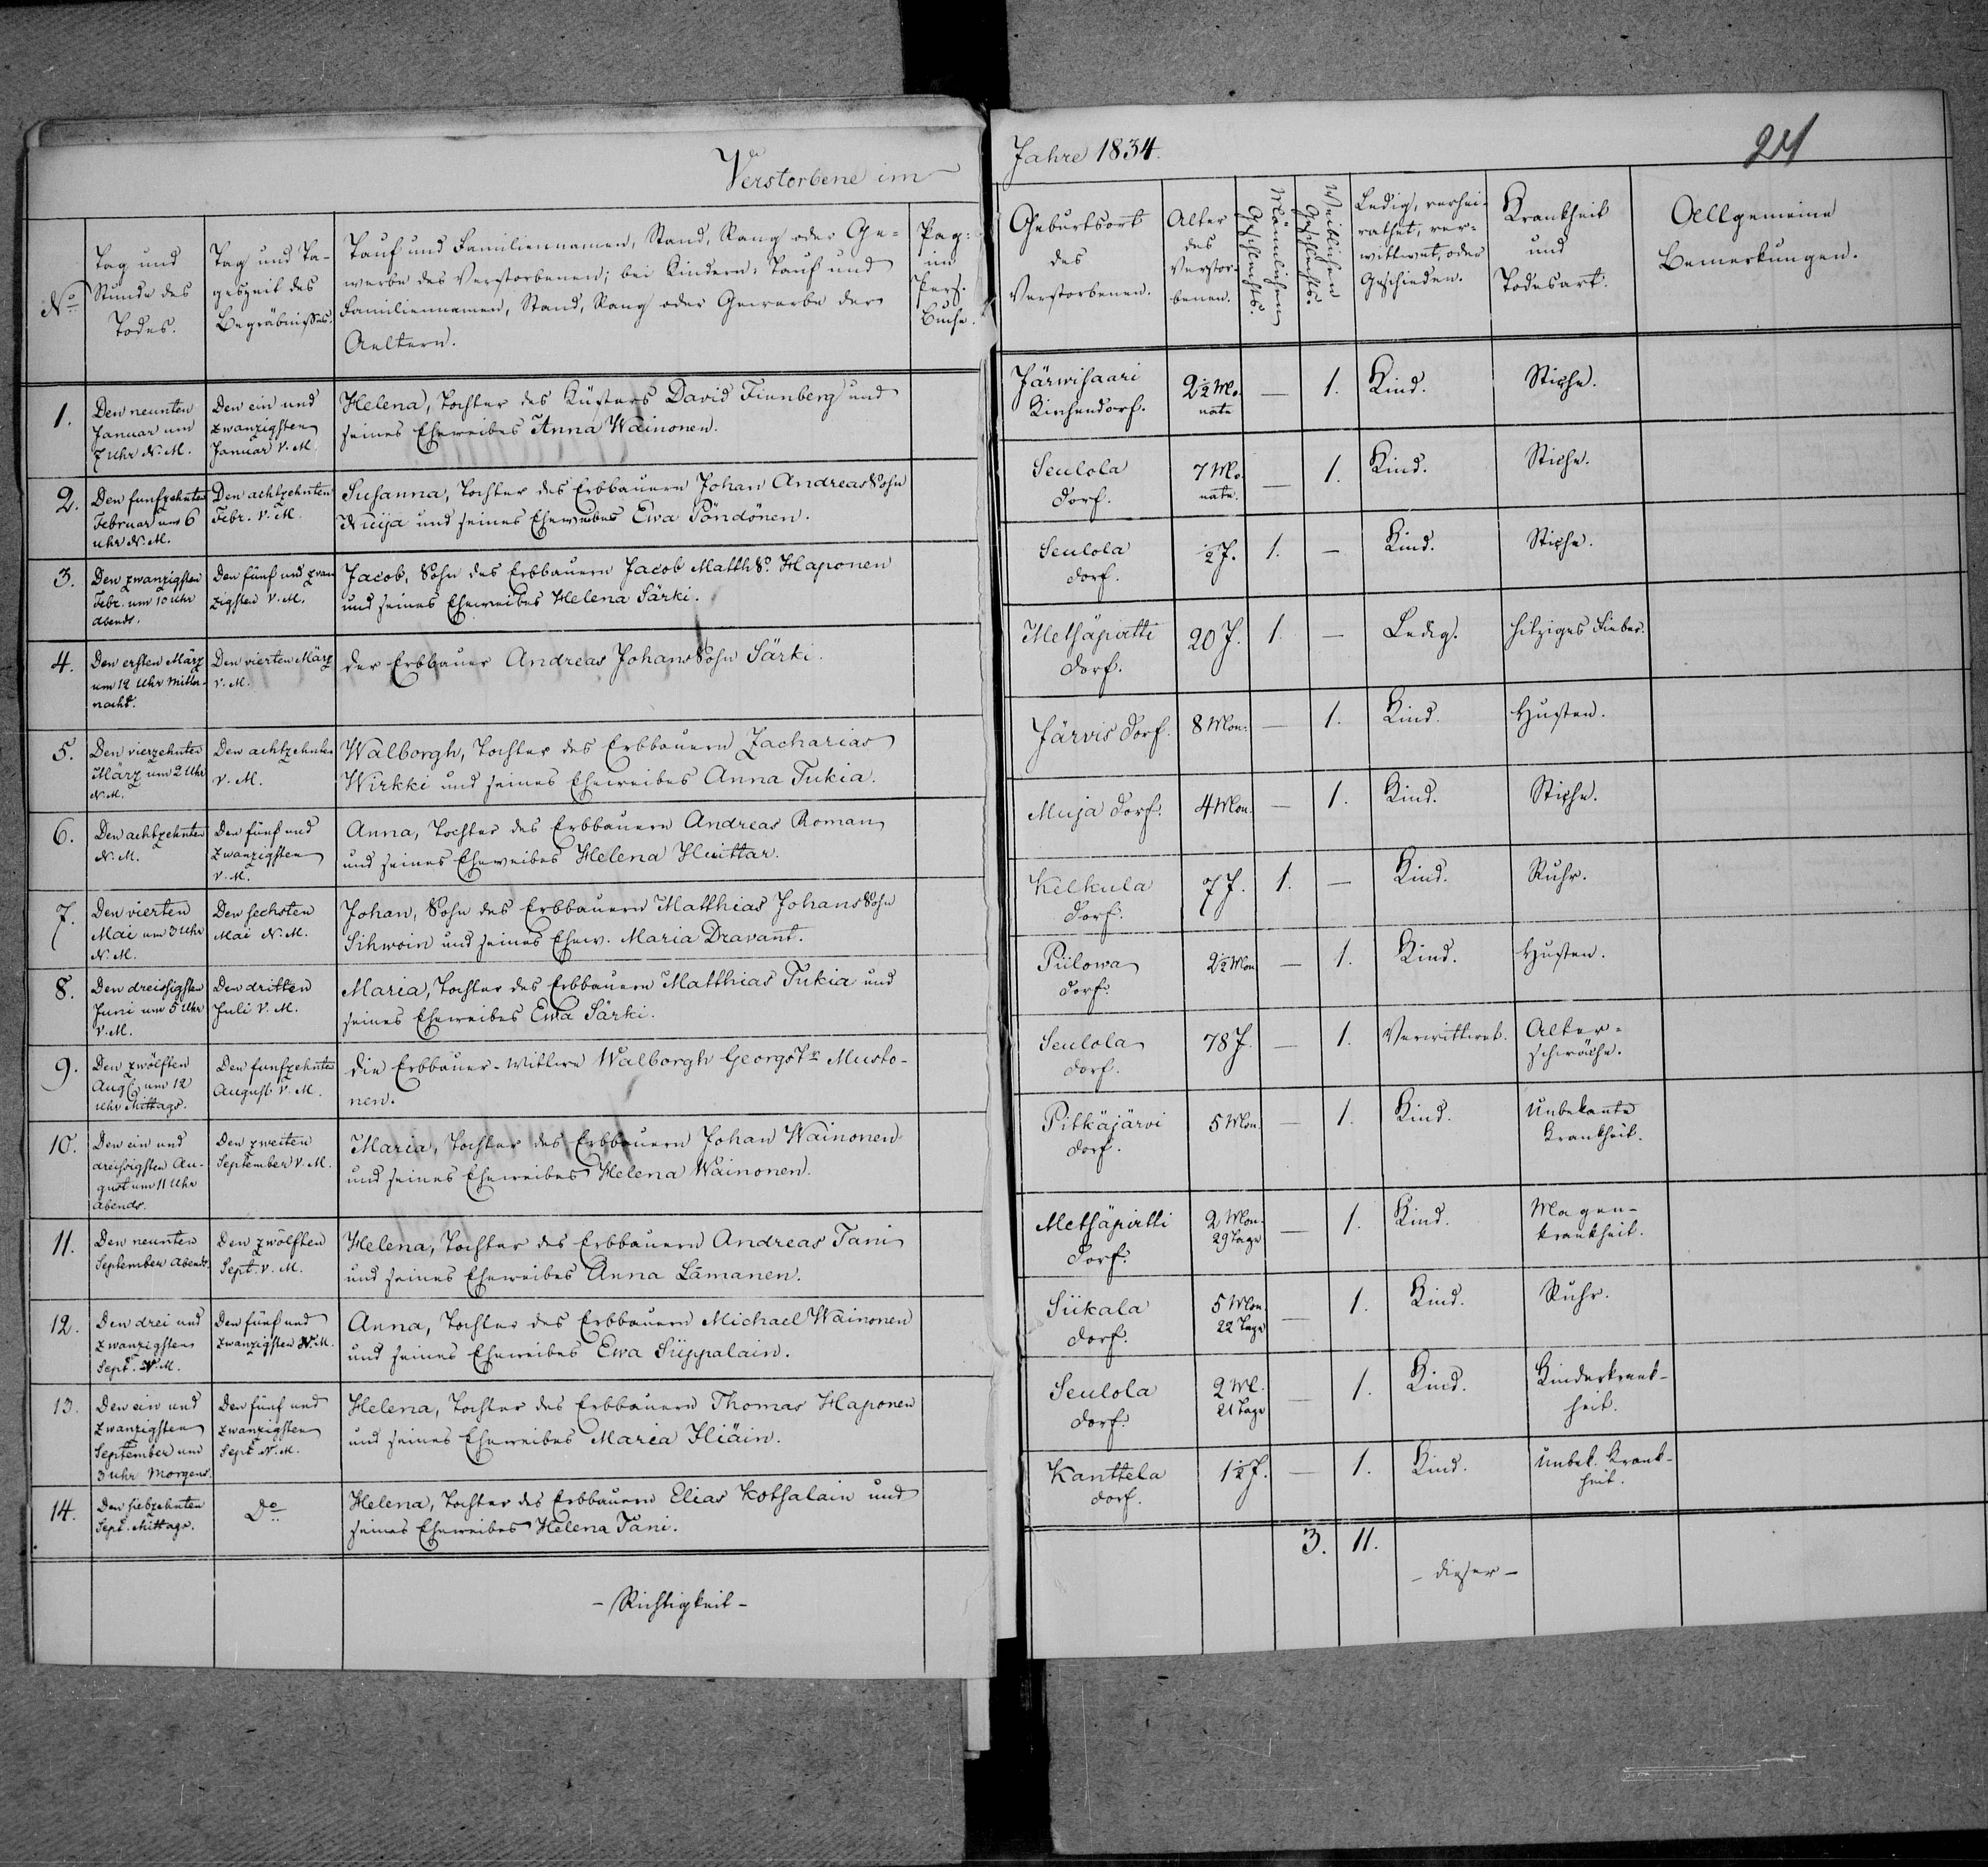 Verstorbene im
No
Tag und
Stunde des
Todes.
Tag und Ta-
geszeit des
Begräbnisses.
Tauf und Familiennamen, Stand, Rang oder Ge-
werbe des Verstorbenen; bei Kindern: Tauf und
Familiennamen, Stand, Rang oder Gewerbe der
Aeltern.
Pag:
im
Pers.
Buche.
1.
Den neunten
Januar um
7 Uhr N. M.
Den ein und
zwanzigsten
Januar V. M.
Helena, Tochter des Küsters David Finnberg und
seines Eheweibes Anna Wainonen.
2.
Den funfzehnten
Februar um 6
Uhr N. M.
Den achtzehnten
Febr. V. M.
Susanna, Tochter des Erbbauern Johan Andreas Sohn
und seines Eheweibes Ewa Pöndönen.
3.
Den zwanzigsten
Febr. um 10 Uhr
abends.
Den fünf und zwan
zigsten V. M.
Jacob, Sohn des Erbbauern Jacob Matth So. Haponen
und seines Eheweibes Helena Särki.
4.
Den ersten März
um 12 Uhr Mitter-
nacht.
Den vierten März
V. M.
der Erbbauer Andreas Johans Sohn Särki.
5.
Den vierzehnten
März um 2 Uhr
N. M.
Den achtzehnten
V. M.
Walborgh, Tochter des Erbbauern Zacharias
Wirkki und seines Eheweibes Anna Tukia.
6.
Den achtzehnten
N. M.
Den fünf und
zwanzigsten
V. M.
Anna, Tochter des Erbbauern Andreas Roman
und seines Eheweibes Helena Huittar.
7.
Den vierten
Mai um 3 Uhr
N. M.
Den sechsten
Mai N. M.
Johan, Sohn des Erbbauern Matthias Johans Sohn
Sihwoin und seines Ehew. Maria Dravant.
8.
Den dreissigsten
Juni um 5 Uhr
V. M.
Den dritten
Juli V. M.
Maria, Tochter des Erbbauern Matthias Tukia und
seines Eheweibes Ewa Särki.
9.
Den zwölften
Aug. um 12
Uhr Mittags.
Den funfzehnten
August V. M.
die Erbbauer-Wittwe Walborgh Georgs Tr Musto-
nen.
10.
Den ein und
dreissigsten Au-
gust um 11 Uhr
abends.
Den zweiten
September V. M.
Maria, Tochter des Erbbauern Johan Wainonen
und seines Eheweibes Helena Wainonen.
11.
Den neunten
September Abends.
Den zwölften
Sept. V. M.
Helena, Tochter des Erbbauern Andreas Tani
und seines Eheweibes Anna Lämanen.
12.
Den drei und
zwanzigsten
Sept. N. M.
Den fünf und
zwanzigsten N. M.
Anna, Tochter des Erbbauern Michael Wainonen
und seines Eheweibes Ewa Süppalain.
13.
Den ein und
zwanzigsten
September um
3 Uhr Morgens.
Den fünf und
zwanzigsten
Sept. N. M.
Helena, Tochter des Erbbauern Thomas Haponen
und seines Eheweibes Maria Iliäin.
14.
Den siebzehnten
Sept. Mittags.
Do
Helena, Tochter des Erbbauern Elias Kotsalain und
seines Eheweibes Helena Tani.
- Richtigkeit -
Jahre 1834.
Geburtsort
des
Verstorbenen.
Alter
des
Verstor-
benen.
Männlichen
Geschlechts.
Weiblichen
Geschlechts.
Ledig, verhei-
rathet, ver-
wittwet, oder
Geschieden.
Krankheit
und
Todesart.
Allgemeine
Bemerkungen.
Järwisaari
Kirchendorf.
2½ Mo-
nate
—
1.
Kind.
Stiche.
Seulola
dorf.
7 Mo-
nate.
—
1.
Kind.
Stiche.
Seulola
dorf.
½ J.
1.
—
Kind.
Stiche.
Metsäpirtti
dorf.
20 J.
1.
—
Ledig.
hitziges Fieber.
Järvis dorf.
8 Mon.
—
1.
Kind.
Husten.
Muja dorf.
4 Mon.
—
1.
Kind.
Stiche.
Kelkula
dorf.
7 J.
1.
—
Kind.
Ruhr.
Piilowa
dorf.
2½ Mon.
—
1.
Kind.
Husten.
Seulola
dorf.
78 J.
—
1.
Verwittwet.
Alter-
schwäche.
Pitkäjärvi
dorf.
5 Mon.
—
1.
Kind.
Unbekante
Krankheit.
Metsäpirtti
dorf.
2 Mon.
29 Tage
—
1.
Kind.
Magen-
krankheit.
Siikala
dorf.
5 Mon.
22 Tage
—
1.
Kind.
Ruhr.
Seulola
dorf.
2 M.
21 Tage
—
1.
Kind.
Kinderkrank-
heit.
Kanttela
dorf.
1½ J.
—
1.
Kind.
Unbek. Krank-
heit.
3.
11.
- dieser -